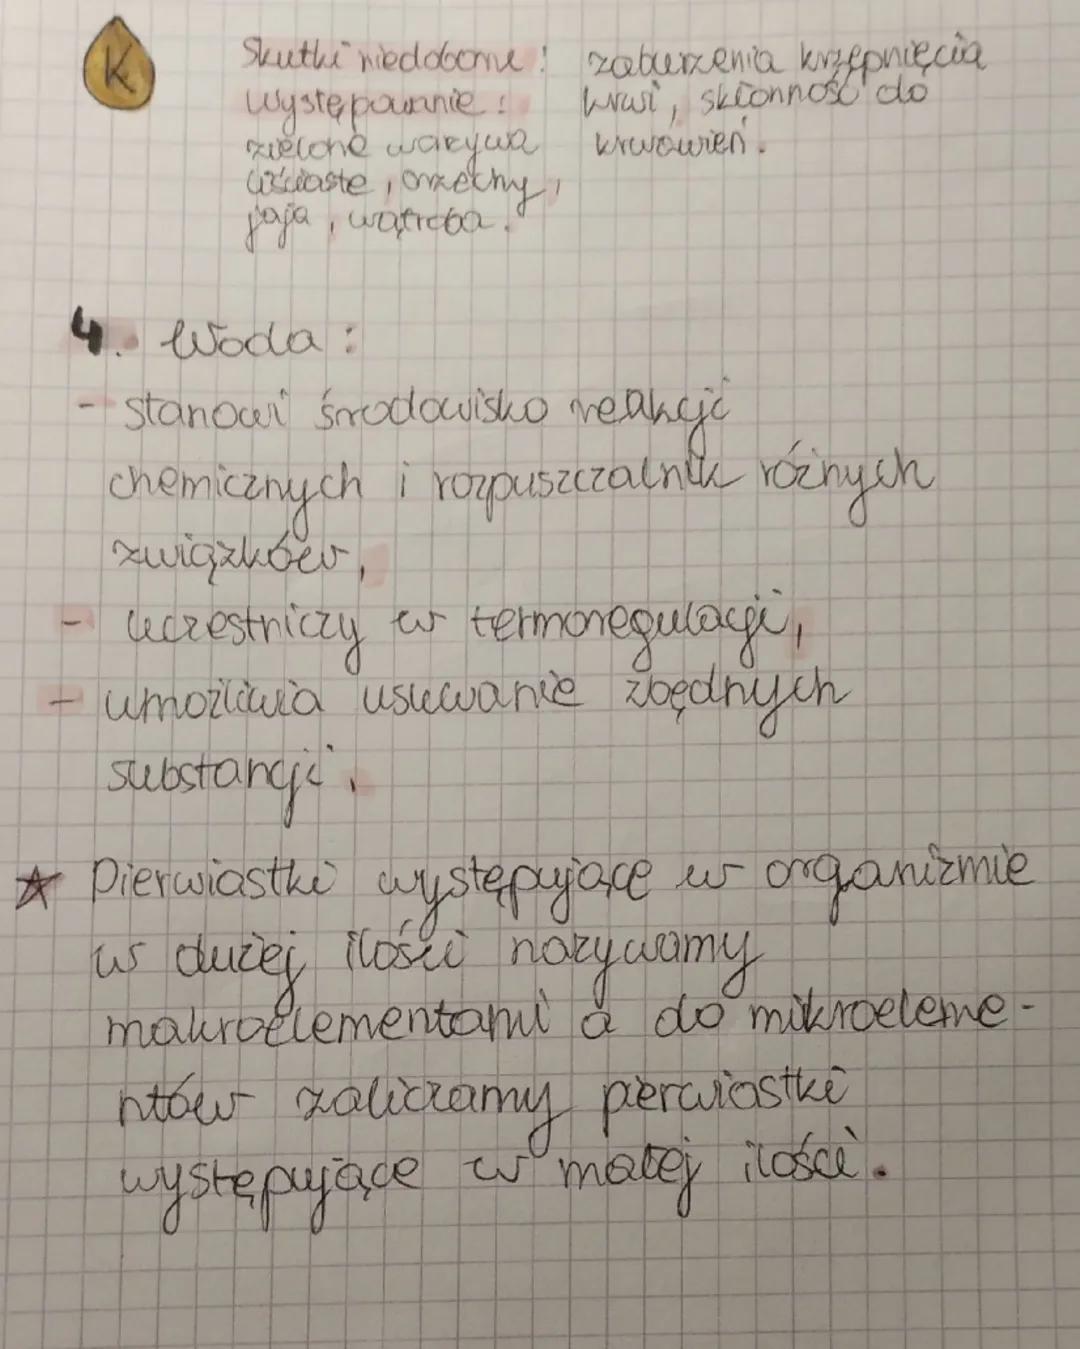 K
Skutki niedoboru: zaburzenia krzepnięcia
występowanie: krwi, skłonność do
zielone warzywa krwawień.
liściaste, orzechy,
jaja, wątroba.
4. Woda:
- stanowi środowisko reakcji
chemicznych i rozpuszczalnik różnych
związków,
- uczestniczy w termoregulacji,
- umożliwia usuwanie zbędnych
substancji.
☆ Pierwiastki występujące w organizmie
w dużej ilości nazywamy
makroelementami a do mikroeleme-
ntów zaliczamy pierwiastki
występujące w małej ilości.